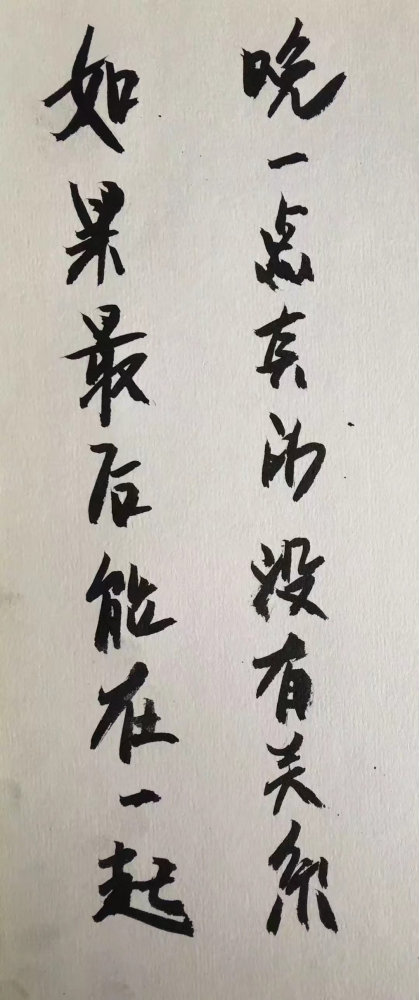 晚一点真的没有关系
如果最后能在一起